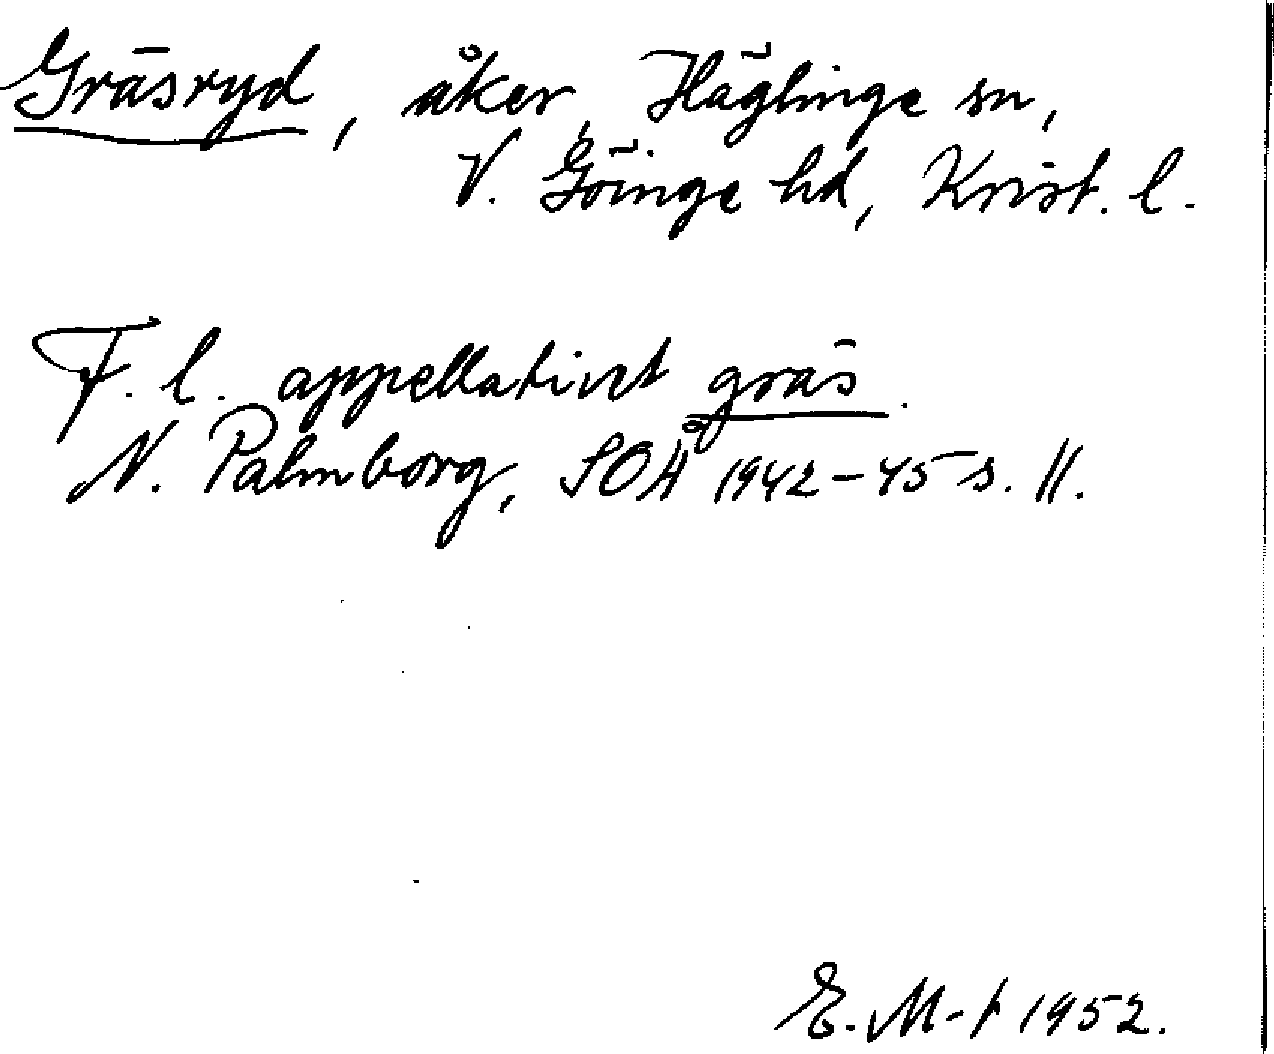 Gräsryd, åker, Häglinge sn,
V. Göinge hd, Krist. l.
F. l. appellativet gräs.
N. Palmborg, SOÅ 1942-45 s. 11.
E. M-t 1952.